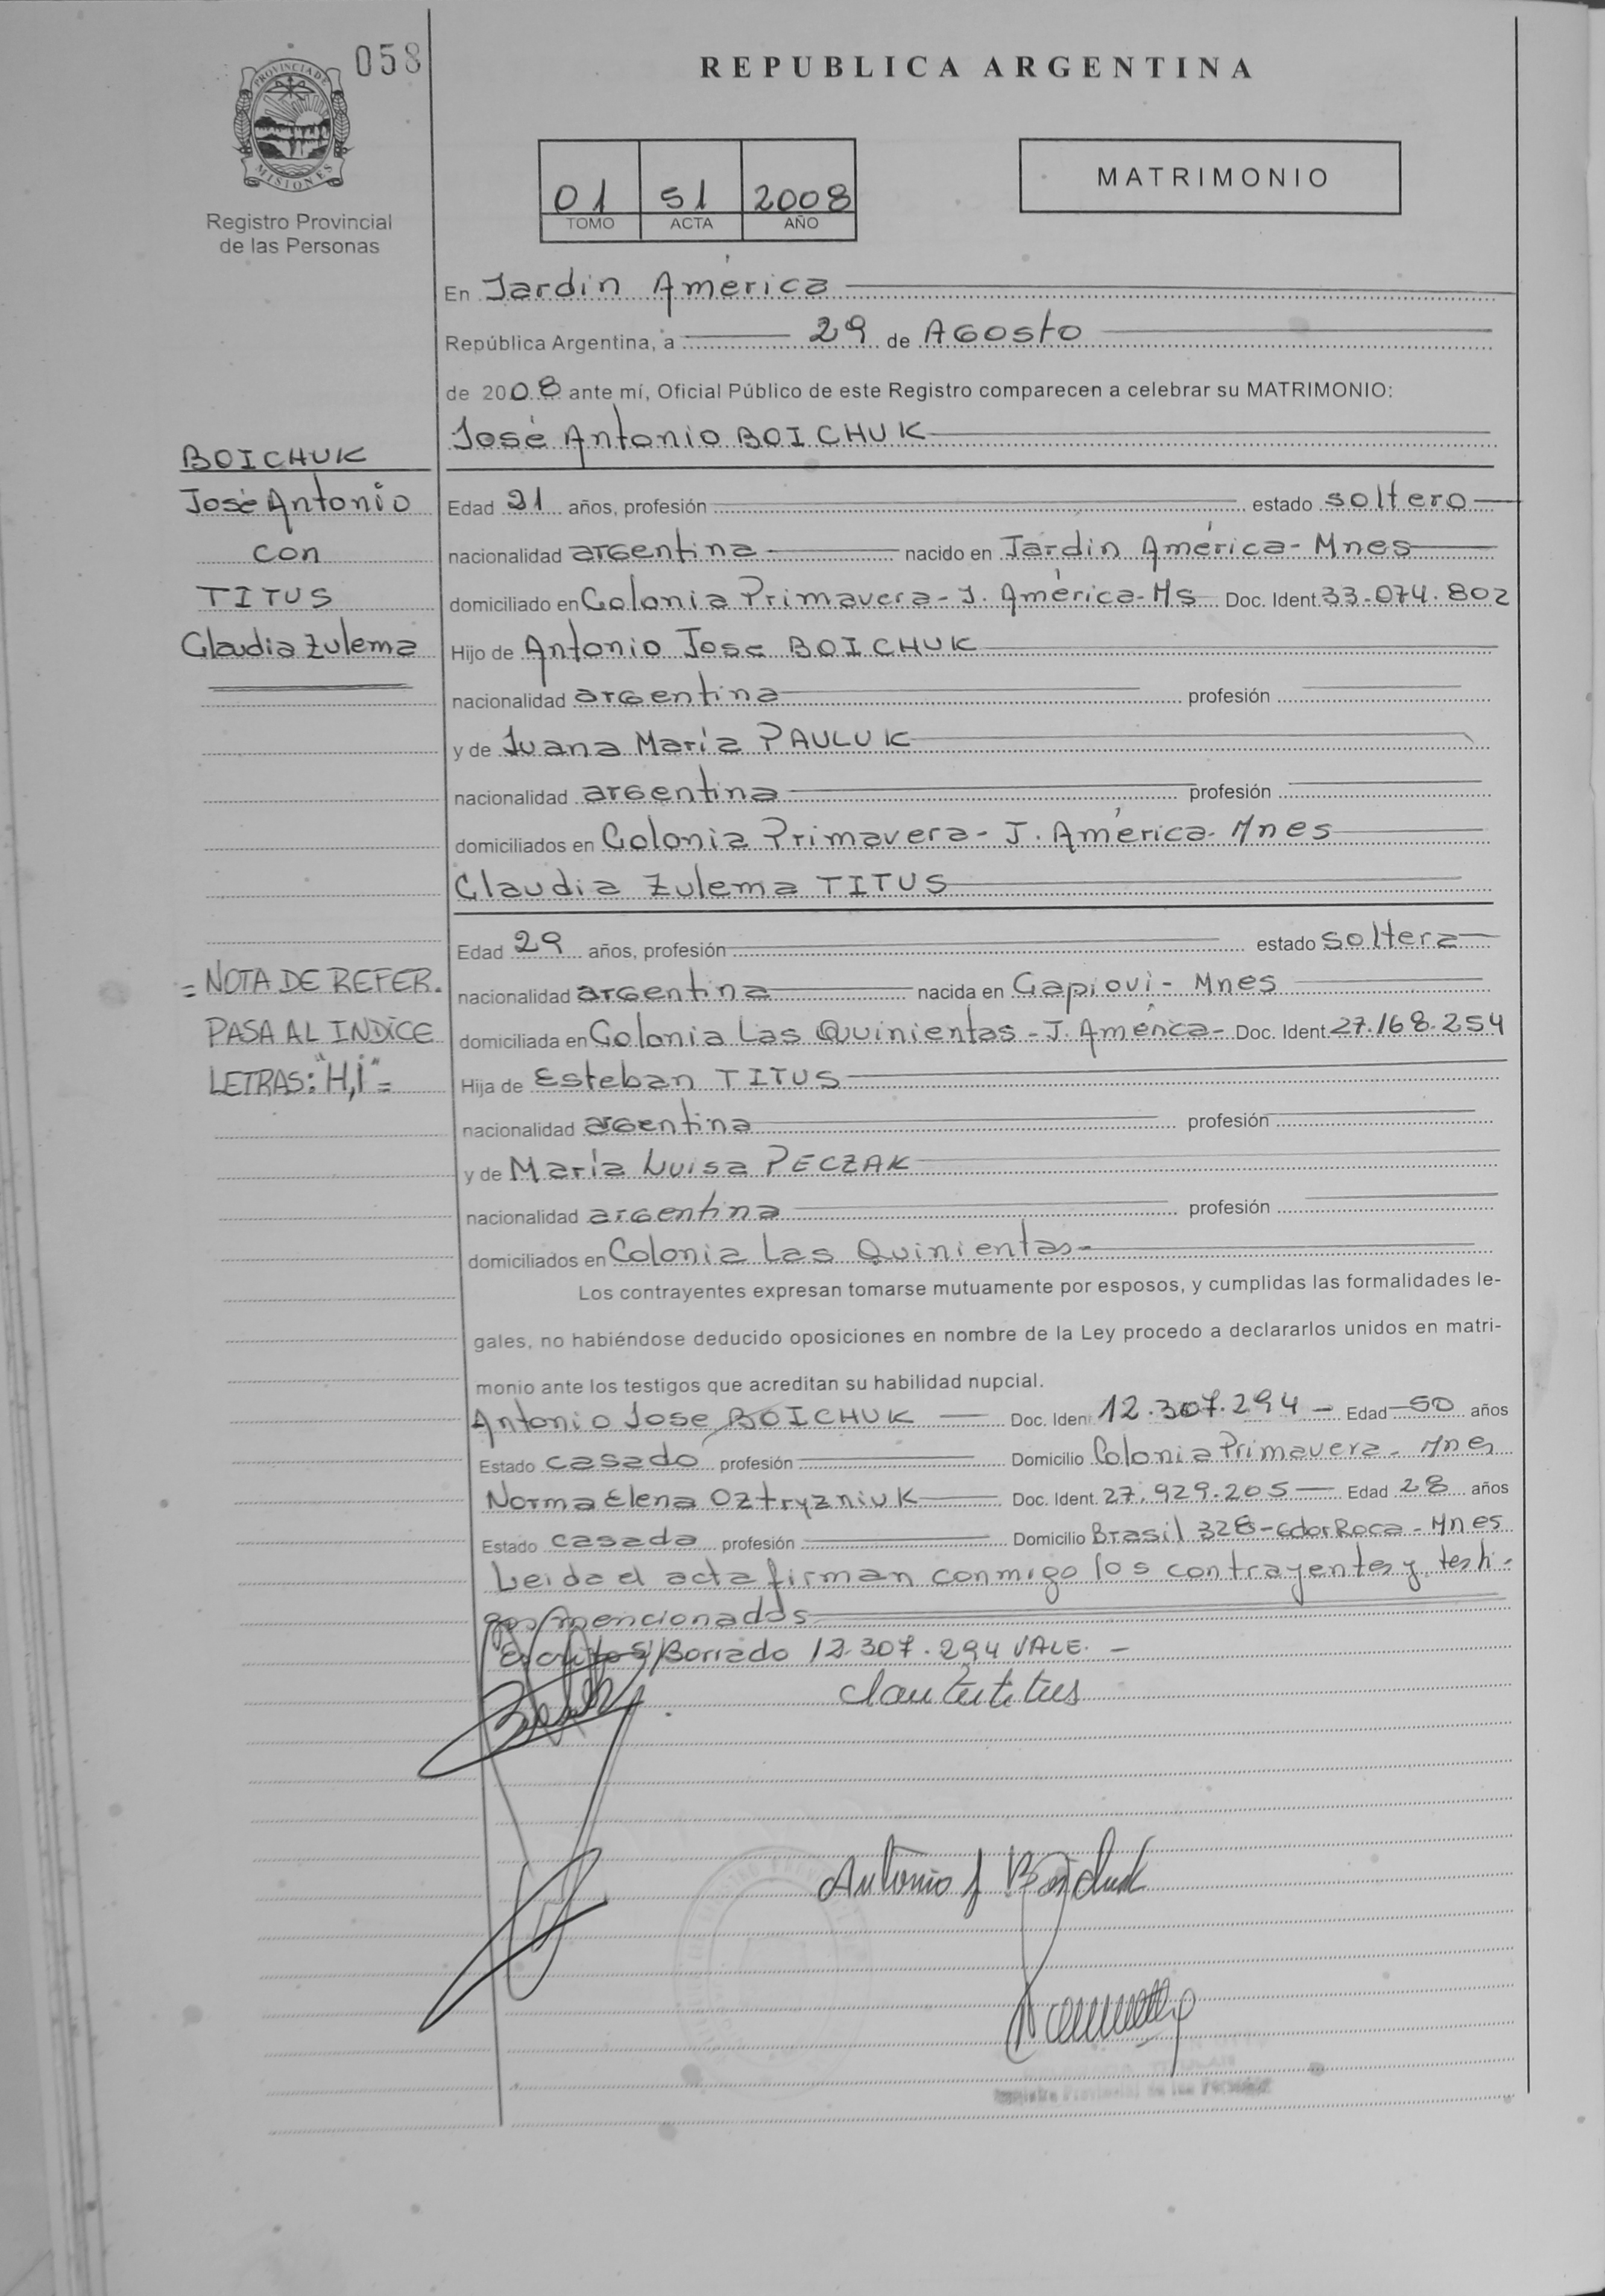 058
PROVINCIA DE
MISIONES
Registro Provincial
de las Personas
REPUBLICA ARGENTINA
01 51 2008
TOMO ACTA AÑO
MATRIMONIO
En Jardín América
República Argentina, a 29 de Agosto
de 2008 ante mí, Oficial Público de este Registro comparecen a celebrar su MATRIMONIO:
José Antonio BOICHUK
BOICHUK
José Antonio
con
TITUS
Claudia Zulema
Edad 21 años, profesión estado soltero
nacionalidad argentina nacido en Jardín América - Mnes
domiciliado en Colonia Primavera - J. América - Ms Doc. Ident. 33.074.802
Hijo de Antonio Jose BOICHUK
nacionalidad argentina profesión
y de Juana María PAULUK
nacionalidad argentina profesión
domiciliados en Colonia Primavera - J. América - Mnes
Claudia Zulema TITUS
= NOTA DE REFER.
PASA AL INDICE
LETRAS: "H,I" =
Edad 29 años, profesión estado soltera
nacionalidad argentina nacida en Capioví - Mnes
domiciliada en Colonia Las Quinientas - J. América - Doc. Ident. 27.168.254
Hija de Esteban TITUS
nacionalidad argentina profesión
y de María Luisa PECZAK
nacionalidad argentina profesión
domiciliados en Colonia Las Quinientas -
Los contrayentes expresan tomarse mutuamente por esposos, y cumplidas las formalidades le-
gales, no habiéndose deducido oposiciones en nombre de la Ley procedo a declararlos unidos en matri-
monio ante los testigos que acreditan su habilidad nupcial.
Antonio Jose BOICHUK Doc. Iden 12.307.294 - Edad 50 años
Estado casado profesión Domicilio Colonia Primavera - Mnes
Norma Elena Oztryzniuk Doc. Ident. 27.929.205 Edad 28 años
Estado casada profesión Domicilio Brasil 328 - Gdor Roca - Mnes
Leida el acta firman conmigo los contrayentes y testi-
gos mencionados
Escritos/Borrado 12.307.294 VALE. -
Antonio J Boichuk
Registro Provincial de las Personas